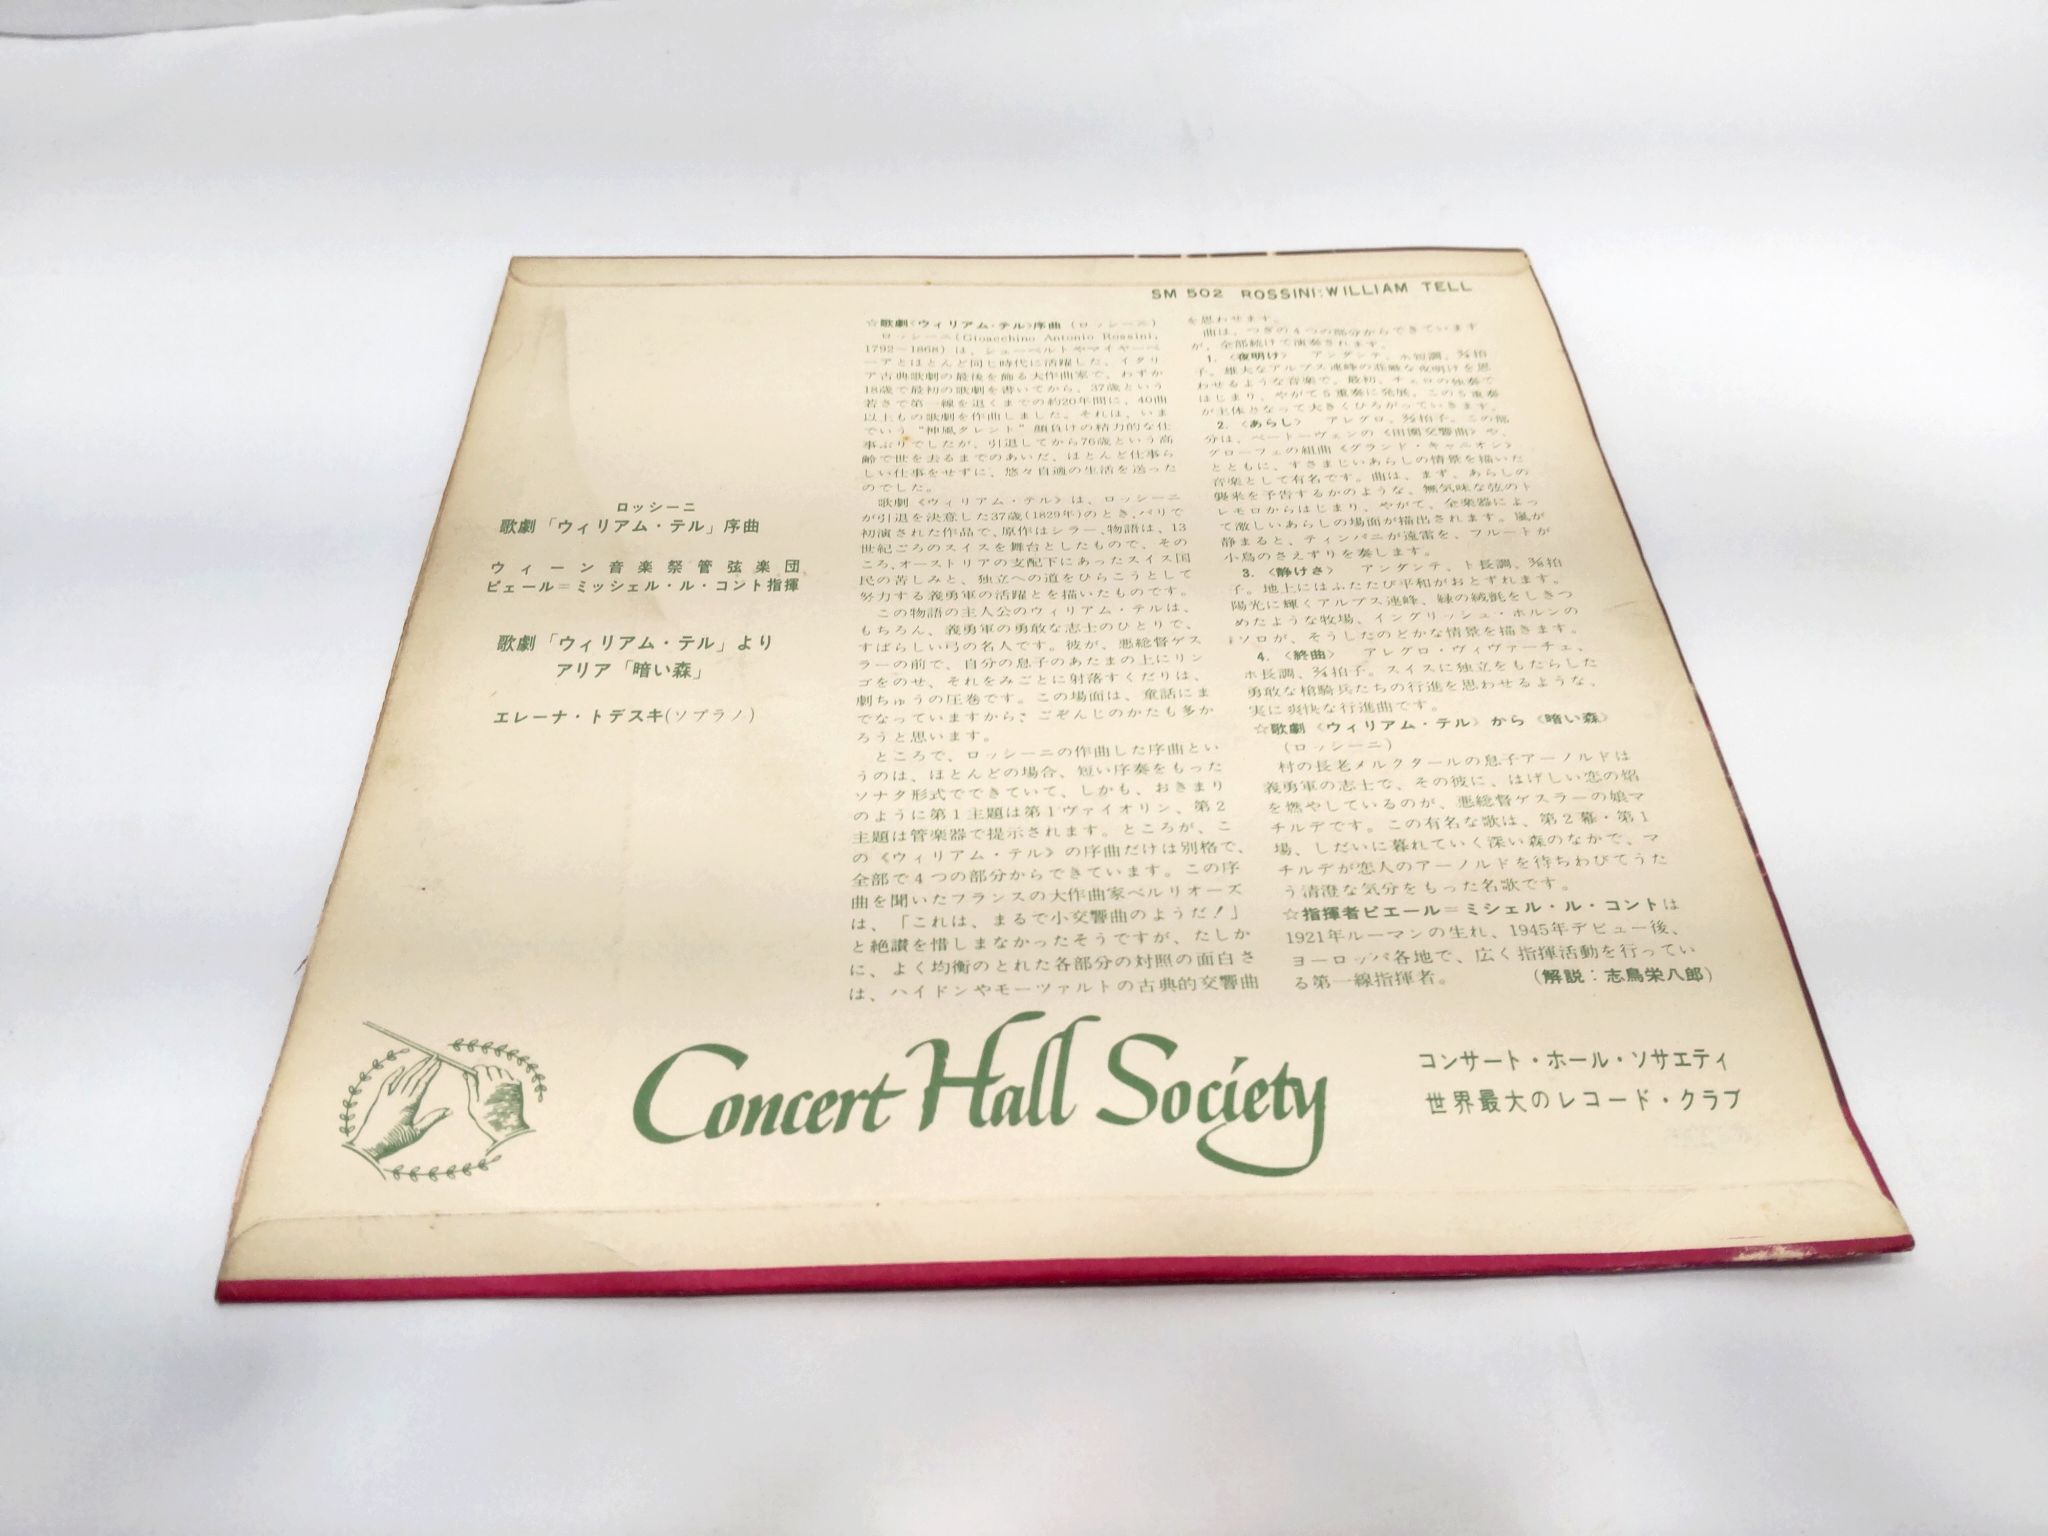 SM 502 ROSSINI:WILLIAM TELL
ロッシーニ
歌劇「ウィリアム・テル」序曲
ウィーン音楽祭管弦楽団
ピエール=ミッシェル・ル・コント指揮
歌劇「ウィリアム・テル」より
アリア「暗い森」
エレーナ・トデスキ(ソプラノ)
☆歌劇《ウィリアム・テル》序曲(ロッシーニ)
ロッシーニ(Gioacchino Antonio Rossini,
1792〜1868)は、シューベルトやマイヤーベ
ーアとほとんど同じ時代に活躍した、イタリ
ア古典歌劇の最後を飾る大作曲家で、わずか
18歳で最初の歌劇を書いてから、37歳という
若さで第一線を退くまでの約20年間に、40曲
以上もの歌劇を作曲しました。それは、いま
でいう“神風タレント”顔負けの精力的な仕
事ぶりでしたが、引退してから76歳という高
齢で世を去るまでのあいだ、ほとんど仕事ら
しい仕事をせずに、悠々自適の生活を送った
のでした。
歌劇《ウィリアム・テル》は、ロッシーニ
が引退を決意した37歳(1829年)のとき、パリで
初演された作品で、原作はシラー、物語は、13
世紀ごろのスイスを舞台としたもので、その
ころ、オーストリアの支配下にあったスイス国
民の苦しみと、独立への道をひらこうとして
努力する義勇軍の活躍とを描いたものです。
この物語の主人公のウィリアム・テルは、
もちろん、義勇軍の勇敢な志士のひとりで、
すばらしい弓の名人です。彼が、悪総督ゲス
ラーの前で、自分の息子のあたまの上にリン
ゴをのせ、それをみごとに射落すくだりは、
劇ちゅうの圧巻です。この場面は、童話にま
でなっていますから、ごぞんじのかたも多か
ろうと思います。
ところで、ロッシーニの作曲した序曲とい
うのは、ほとんどの場合、短い序奏をもった
ソナタ形式でできていて、しかも、おきまり
のように第1主題は第1ヴァイオリン、第2
主題は管楽器で提示されます。ところが、こ
の《ウィリアム・テル》の序曲だけは別格で、
全部で4つの部分からできています。この序
曲を聞いたフランスの大作曲家ベルリオーズ
は、「これは、まるで小交響曲のようだ!」
と絶讃を惜しまなかったそうですが、たしか
に、よく均衡のとれた各部分の対照の面白さ
は、ハイドンやモーツァルトの古典的交響曲
を思わせます。
曲は、つぎの4つの部分からできています
が、全部続けて演奏されます。
1.〈夜明け〉 アンダンテ、ホ短調、¾拍
子。雄大なアルプス連峰の荘厳な夜明けを思
わせるような音楽で、最初、チェロの独奏で
はじまり、やがて5重奏に発展、この5重奏
が主体となって大きくひろがっていきます。
2.〈あらし〉 アレグロ、拍子。この部
分は、ベートーヴェンの《田園交響曲》や、
グローフェの組曲《グランド・キャニオン》
とともに、すさまじいあらしの情景を描いた
音楽として有名です。曲は、まず、あらしの
襲来を予告するかのような、無気味な弦のト
レモロからはじまり、やがて、全楽器によっ
て激しいあらしの場面が描出されます。嵐が
静まると、ティンパニが遠雷を、フルートが
小鳥のさえずりを奏します。
3.〈静けさ〉 アンダンテ、ト長調、⅜拍
子。地上にはふたたび平和がおとずれます。
陽光に輝くアルプス連峰、緑の絨氈をしきつ
めたような牧場、イングリッシュ・ホルンの
ソロが、そうしたのどかな情景を描きます。
4.〈終曲〉 アレグロ・ヴィヴァーチェ、
ホ長調、²⁄₄拍子。スイスに独立をもたらした
勇敢な槍騎兵たちの行進を思わせるような、
実に爽快な行進曲です。
☆歌劇《ウィリアム・テル》から《暗い森》
(ロッシーニ)
村の長老メルクタールの息子アーノルドは
義勇軍の志士で、その彼に、はげしい恋の焔
を燃やしているのが、悪総督ゲスラーの娘マ
チルデです。この有名な歌は、第2幕・第1
場、しだいに暮れていく深い森のなかで、マ
チルデが恋人のアーノルドを待ちわびてうた
う清澄な気分をもった名歌です。
☆指揮者ピエール=ミシェル・ル・コントは
1921年ルーマンの生れ、1945年デビュー後、
ヨーロッパ各地で、広く指揮活動を行ってい
る第一線指揮者。 (解説:志鳥栄八郎)
Concert Hall Society
コンサート・ホール・ソサエティ
世界最大のレコード・クラブ